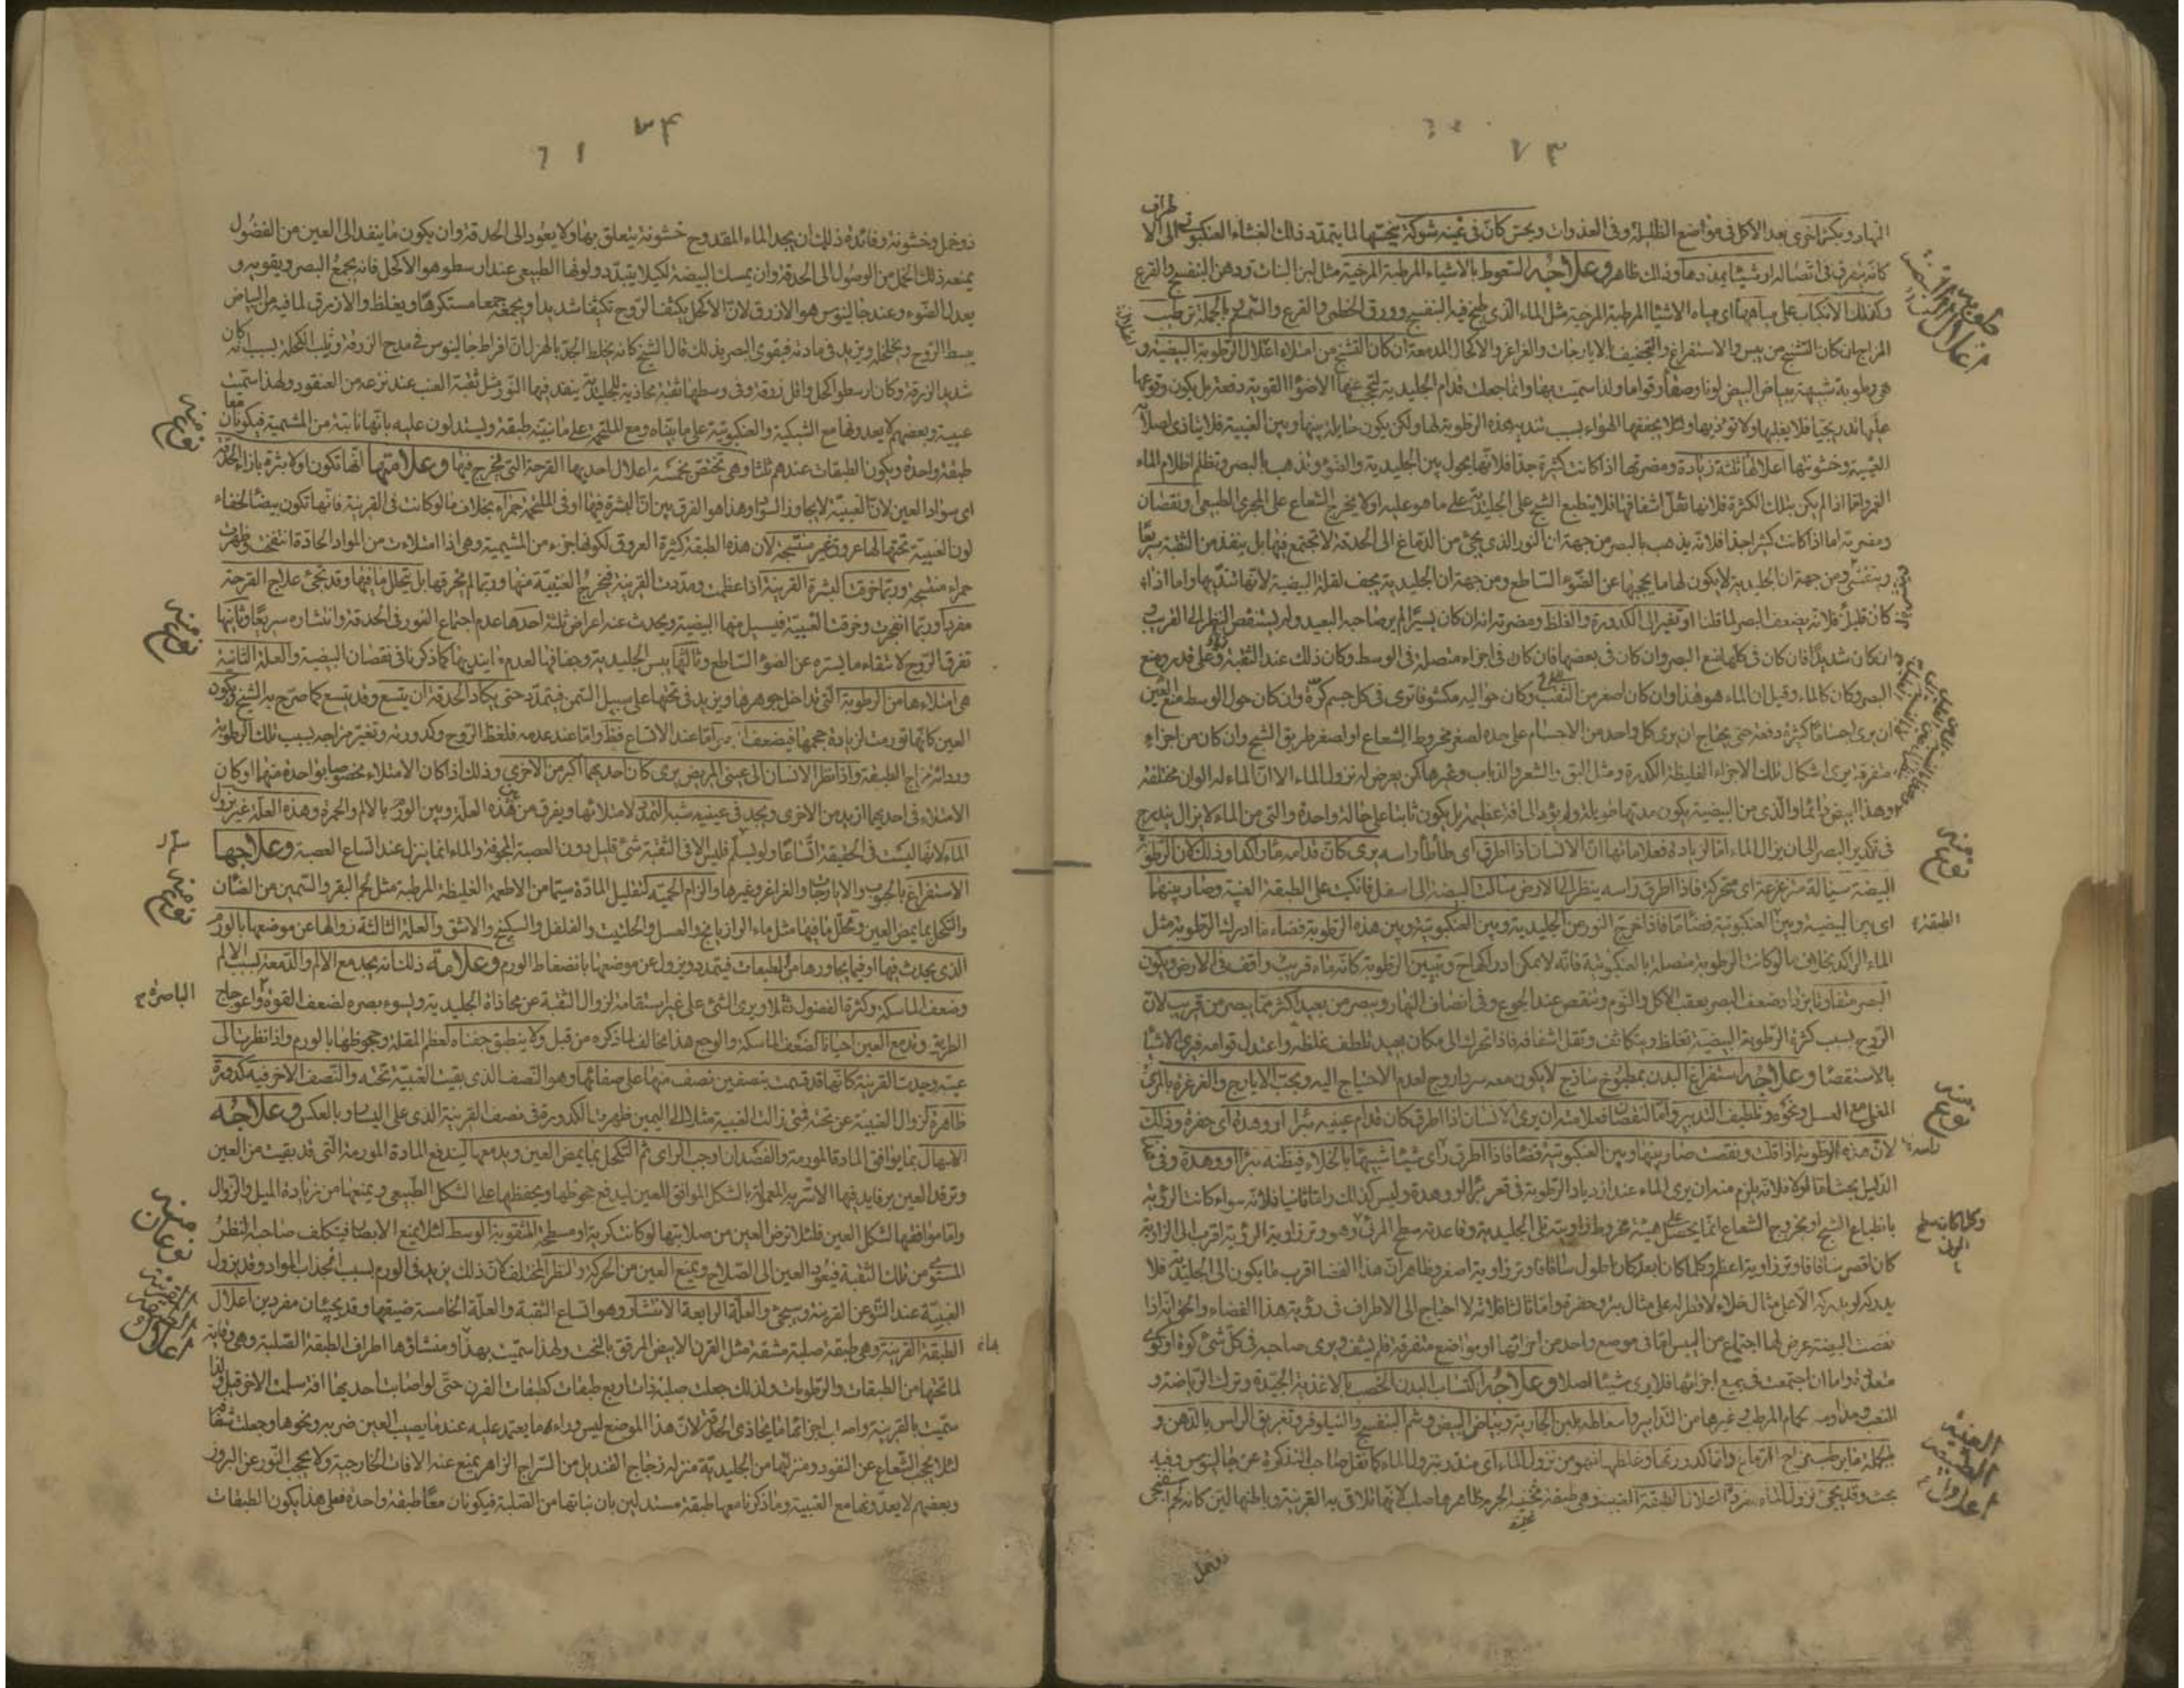 ۷۳
النهار ويكثر اذى بعد الاكل فى مواضع الظليلة وفى الغدوات ويحس كان فى عينه شوكة ينخسها لما يتمدد ذلك الغشاء العنكبوتى الى الا
طراف
كانه يتفرق فى اتصاله او شيئا يمددها وذلك ظاهر وعلاجه السعوط بالاشياء المرطبة المرخية مثل لبن البنات ودهن البنفسج والقرع
وكذلك الانكباب على مياهها اى مياه الاشياء المرطبة المرخية مثل الماء الذى طبخ فيه البنفسج وورق الخطمى والقرع وبالجملة ترطيب
المزاج ان كان التشنج من يبس والاستفراغ والتجفيف بالايارجات والغراغر والاكحال المدمعة ان كان التشنج من امتلاء اعلال الرطوبة البيضية و
هى رطوبة شبيهة ببياض البيض لونا وصفاء وقواما ولذا سميت بها وانما جعلت قدام الجليدية لتحجب عنها الاضواء القوية دفعة بل يكون وقوعها
عليها تدريجيا فلا يغلبها ولا تؤذيها ولئلا يجففها الهواء بسبب تنديه هذه الرطوبة لها ولكن يكون حايلة بينها وبين العنبية فلا يتاذى اصلابة
العنبية وخشونتها اعلالها ثلثة زيادة ومضرتها اذا كانت كثيرة جدا فلانها يحول بين الجليدية والضوء وتذهب بالبصر وتظلم اظلام الماء
الغمر واما اذا لم يكن بتلك الكثرة فلانها تقل اشفافها فلا ينطبع الشبح على الجليدية على ما هو عليه او لا يخرج الشعاع على المجرى الطبيعى ونقصان
ومضرته اما اذا كانت كثيرا جدا فلانه يذهب بالبصر من جهة ان النور الذى يجئ من الدماغ الى الحدقة لا يجتمع فيها بل ينفذ من الثقبة سريعا
ويتفشى ومن جهة ان الجليدية لا يكون لها ما يحجبها عن الضوء الساطع ومن جهة ان الجليدية يجف لقلة البيضية لانها تنديها واما اذا
كان قليلا فلانه يضعف البصر لما قلنا او تغير الى الكدورة والغلظ ومضرته انه ان كان يسيرا لم ير صاحبه البعيد ولم يستقص النظر الى القريب
وان كان شديدا فان كان فى كلها منع البصر وان كان فى بعضها فان كان فى اجزاء متصلة فى الوسط وكان ذلك عند الثقبة وعلى قدر ومنع
البصر وكان كالماء وقيل ان الماء هو هذا وان كان اصغر من الثقب وكان حواليه مكشوفا توى فى كل جسم كوة وان كان حول الوسط منع العين
ان يرى اجساما كثيرة دفعة حتى يحتاج ان يرى كل واحد من الاجسام على حدة لصغر مخروط الشعاع او لصغر طريق الشبح وان كان من اجزاء
متفرقة يرى اشكال تلك الاجزاء الغليظة الكدرة ومثل البق والشعر والذباب وغيرها كمن يعرض له نزول الماء الا ان الماء له الوان مختلفة
وهذا ابيض دائما والذى من البيضية يكون مدتها طويلة ولم يؤد الى افة عظيمة بل يكون ثابتا على حالة واحدة والتى من الماء لا يزال يتدرج
فى تكدير البصر الى ان ينزل الماء اما الزيادة فعلاماتها ان الانسان اذا اطرق اى طأطأ راسه يرى كان قدامه ماء راكدا وذلك لان الرطوبة
البيضة سيالة مترعزعة اى متحركة فاذا اطرق راسه ينظر الى الارض سالت البيضة الى اسفل فانكبت على الطبقة العنبية وصار بينها
اى بين البيضية وبين العنكبوتية فضاء ما فاذا خرج النور من الجليدية وبين العنكبوتية وبين هذه الرطوبة فضاء ما ادرك الرطوبة مثل
الماء الراكد بخلاف ما لو كانت الرطوبة متصلة بالعنكبوتية فانه لا يمكن ادراكها ح وتبيين الرطوبة كانه ماء قريب واقف فى الارض ويكون
البصر متفاوتا يزداد ضعف البصر بعقب الاكل والنوم وتنقص عند الجوع وفى انصاف النهار ويبصر من بعيد اكثر مما يبصر من قريب لان
الروح بسبب كثرة الرطوبة البيضية تغلظ ويتكاثف وتقل اشفافه فاذا تحرك الى مكان بعيد تلطف غلظه واعتدل قوامه فيرى الاشيا
بالاستقصا وعلاجه استفراغ البدن بمطبوخ ساذج لا يكون معه سردارو ج لعدم الاحتياج اليه وبحب الايارج والغرغرة بالمرى
المغلى مع العسل ونحوه وتلطيف التدبير واما النقصان فعلامته ان يرى الانسان اذا اطرق كان قدام عينيه بئرا او وهدة اى حفرة وذلك
لان هذه الرطوبة اذا قلت ونقصت صار بينها وبين العنكبوتية فضاء فاذا اطرق رأى شيئا شبيها بالخلاء فيظنه بئرا او وهدة وفى
الدليل بحث اما اولا فلانه يلزم منه ان يرى الماء عند ازدياد الرطوبة فى قعر بئر او وهدة وليس كذلك واما ثانيا فلانه سواء كانت الرؤية
بانطباع الشبح او بخروج الشعاع انما يحصل على هيئة مخروط زاويته تلى الجليدية وقاعدته سطح المرئى وهو وتر زاوية الرؤية اقرب الى الزاوية
كان اقصر ساقا فاوتر زاوية اعظم وكلما كان ابعد كان اطول ساقا فاوتر زاوية اصغر وظاهر ان هذا الفضا اقرب ما يكون الى الجليدية فلا
يدركه لو يدركه الا على مثال خلاء لا فطر له على مثال بئر وحفرة واما ثالثا فلانه لا احتياج الى الاطراف فى رؤية هذا الفضاء والحق انه اذا
نقصت البيضة عرض لها اجتماع من اليبس اما فى موضع واحد من اجزائها او مواضع متفرقة فلم يشف ويرى صاحبه فى كل شئ كوة او كوى
متعددة واما ان اجتمعت فى جميع اجزائها فلا يرى شيئا اصلا وعلاجه اكتساب البدن الخصب بالاغذية الجيدة وترك الرياضة و
التعب ومداومة حمام المرطب وغيرها من التدابير واسعاطه بلبن الجارية وبياض البيض وشم البنفسج والنيلوفر وتغريق الراس بالدهن و
بحث وقد يجئ نزول الماء مفردا اعلال الطبقة العنبية وهى طبقة ثخينة الجرم ظاهرها صلب لانها تلاقى به القرنية وباطنها لين كانه لحم اسفنجى
ذو خمل
رطوبة البيضية
اعلال
نوع منه
الطبقة
نوع منه
وكلما كان سطح
المرئى
العنبية
الطبقة
اعلال
۷۴
۶۱
ذو خمل وخشونة وفائدة ذلك ان يجد الماء المقدوح خشونة يتعلق بها ولا يعود الى الحدقة وان يكون ما ينفذ الى العين من الفضول
يمنعه ذلك الخمل من الوصول الى الحدقة وان يمسك البيضة لكيلا يتبدد ولونها الطبيعى عند ارسطو هو الاكحل فانه يجمع البصر ويقويه و
يعدل الضوء وعند جالينوس هو الازرق لان الاكحل يكثف الروح تكثيفا شديدا ويجمعه جمعا مستكرها ويغلظ والازرق لما فيه من البياض
يبسط الروح ويخلخله ويزيد فى مادته فيقوى البصر بذلك قال الشيخ كانه يخلط الجد بالهزل ان افراط جالينوس فى مدح الزرقة وثلب الكحلة بسبب انه كان
شديد الزرقة وكان ارسطو اكحل واقل زرقة وفى وسطها ثقبة محاذية للجليدية ينفذ فيها النور مثل ثقبة العنب عند نزعه من العنقود ولهذا سميت
عنبية وبعضهم لا يعدونها مع الشبكية والعنكبوتية على ما بيناه ومع الملتحمة على ما نبينه طبقة ويستدلون عليه بانها نابتة من المشيمية فيكونان معا
طبقة واحدة ويكون الطبقات عندهم ثلثا وهى تختص بخمسة اعلال احديها القرحة التى تخرج فيها وعلامتها انها تكون اولا بثرة بازاء الحدقة
اى سواد العين لان العنبية لا يجاوز السواد وهذا هو الفرق بين ان البثرة فيها او فى الملتحمة حمراء بخلاف ما لو كانت فى القرنية فانها تكون بيضا لخفاء
لون العنبية تحتها لها عروق غير منتسجة لان هذه الطبقة كثيرة العروق لكونها جزء من المشيمية وهى اذا امتلاءت من المواد الحادة انتفخت وظهرت
حمراء منتسجة وربما خرقت البثرة القرنية اذا عظمت ومددت القرنية فتخرج العنبية منها وربما لم يخرقها بل يتحلل ما فيها وقد تجئ علاج القرحة
مفردا وربما انفجرت وخرقت العنبية فيسيل منها البيضية ويحدث عنه اعراض ثلثة احدها عدم اجتماع النور فى الحدقة وانتشاره سريعا وثانيها
تفرق الروح لانتفاء ما يستره عن الضوء الساطع وثالثها يبس الجليدية وجفافها لعدم ما يندبها كما ذكرنا فى نقصان البيضية والعلة الثانية
هى امتلاءها من الرطوبة التى تداخل جوهرها ويزيد فى ثخنها على سبيل السمن فيتمدد حتى يكاد الحدقة ان يتسع وقد يتسع كما صرح به الشيخ ويكون
العين كانها تورمت لزيادة حجمها فيضعف البصر اما عند الاتساع فظ واما عند عدمه فلغلظ الروح وكدورته وتغير مزاجه بسبب تلك الرطوبة
ورداءة مزاج الطبقة واذا نظر الانسان الى عينى المريض يرى كان احديهما اكبر من الاخرى وذلك اذا كان الامتلاء مخصوصا بواحدة منهما او كان
الامتلاء فى احديهما ازيد من الاخرى ويجد فى عينيه شبه التمدد لامتلائها ويفرق بين هذه العلة وبين الورم بالالم والحمرة وهذه العلة غير نزول
الماء لانها ليست فى الحقيقة اتساعا ولو سلم فليس الا فى الثقبة شئ قليل دون العصبة المجوفة والماء انما ينزل عند اتساع العصبة وعلاجها
الاستفراغ بالحبوب والايارجات والغراغر وغيرها والزام الحمية لتقليل المادة سيما من الاطعمة الغليظة المرطبة مثل لحم البقر والسمين من الضان
والتكحل بما يمض العين وتحلل ما فيها مثل ماء الرازيانج والعسل والحلتيت والفلفل والسكبينج والاشق والعلة الثالثة زوالها عن موضعها بالورم
الذى يحدث فيها او فيما يجاورها من الطبقات فيتمدد ويزول عن موضعها بانضغاط الورم وعلامته ذلك انه يجد مع الالم والدمعة بسبب الالم
وضعف الماسكة وكثرة الفضول ثقلا ويرى الشئ على غير استقامة لزوال الثقبة عن محاذاة الجليدية ويسوء بصره لضعف القوة واعوجاج
الطريق وتدمع العين احيانا لضعف الماسكة والوجع هذا مخالف لما ذكره من قبل ولا ينطبق جفناه لعظم المقلة وجحوظها بالورم واذا نظرت الى
عينه وجدت القرنية كانها قد قسمت بنصفين نصف منها على صفائها وهو النصف الذى بقيت العنبية تحته والنصف الاخر فيه كدورة
ظاهرة لزوال العنبية عن تحته فمتى زالت العنبية مثلا الى اليمين ظهرت الكدورة فى نصف القرنية الذى على اليسار وبالعكس وعلاجه
الاسهال بما يوافق المادة المورمة والفصد ان اوجب الراى ثم التكحل بما يمض العين ويدمعها ليندفع المادة المورمة التى قد بقيت من العين
وترفد العين برفايد فيها الاسربة المعمولة بالشكل الموافق العين ليدفع جحوظها ويحفظها على الشكل الطبيعى ويمنعها من زيادة الميل والزوال
واما موافقها لشكل العين فلئلا ترض العين من صلابتها لو كانت كرية او مسطحة المثقوبة الوسط لئلا يمنع الابصار فيتكلف صاحبه النظر
المستوى من تلك الثقبة فيعود العين الى الصلاح ويمنع العين من الحركة والنظر المختلف لان ذلك يزيد فى الورم بسبب انجذاب المواد وقد يزول
العنبية عند النتو عن القرنية وسيجئ والعلة الرابعة الانتشار وهو اتساع الثقبة والعلة الخامسة ضيقها وقد يجيئان مفردين اعلال
الطبقة القرنية وهى طبقة صلبة مشفة مثل القرن الابيض المرقق بالنحت ولهذا سميت بهذا ومنشاؤها اطراف الطبقة الصلبة وهى وقاية
لما تحتها من الطبقات والرطوبات ولذلك جعلت صلبة ذات اربع طبقات كطبقات القرن حتى لو اصابت احديها افة سلمت الاخر قيل ولذا
سميت بالقرنية واصلب اجزائها ما يحاذى الحدقة لان هذا الموضع ليس وراءه ما يعتمد عليه عند ما يصيب العين ضربه ونحوها وجعلت شفافة
لئلا يحجب الشعاع عن النفود ومنزلتها من الجليدية منزلة زجاج القنديل من السراج الزاهر يمنع عنه الافات الخارجية ولا يحجب النور عن البروز
وبعضهم لا يعدونها مع العنبية وما ذكرنا معها طبقة مستدلين بان نباتها من الصلبة فيكونان معا طبقة واحدة فعلى هذا يكون الطبقات
نوع منه
نوع منه
نوع منه
الباصرة
نوعان منه
القرنية
الطبقة
اعلال